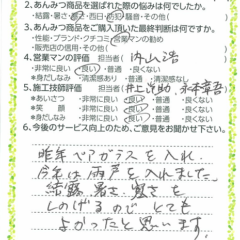 2.あんみつ商品を選ばれた際の悩みは何でしたか。
・結露・暑さ・寒さ・西日・防犯・騒音・その他(
3.あんみつ商品をご購入頂いた最終判断は何ですか。
・性能・ブランド・クチコミ・営業マンの勧め
・販売店の信用・その他(
4.営業マンの評価 担当者( 内山浩
・非常に良い ・良い ・普通 ・良くない
*身だしなみ ・清潔感あり ・普通 ・清潔感なし
5.施工技師評価 担当者(井上
*あいさつ ・非常に良い ・良い ・普通 ・良くない
*笑顔 ・非常に良い ・良い ・普通 ・良くない
*身だしなみ ・非常に良い ・良い ・普通 ・良くない
6.今後のサービス向上のため、ご意見をお聞かせ下さい。
昨年ペアガラスを入れ
今年は雨戸を入れました。
結露 暑さ 寒さを
しのげるので とても
よかったと思います。